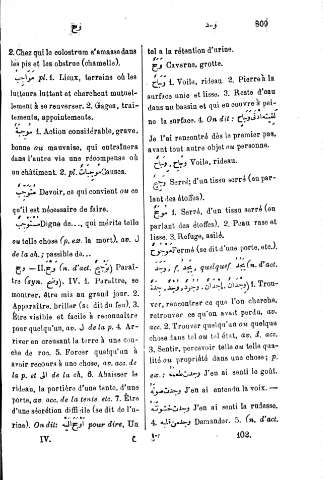 وجح
وجد
809
2. Chez qui le colostrum s'amasse dans
les pis et les obstrue (chamelle).
مَوَاجِب pl. 1. Lieux, terrains où les
lutteurs luttent et cherchent mutuel-
lement à se renverser. 2. Gages, trai-
tements, appointements.
مُوجِبَة 1. Action considérable, grave,
bonne ou mauvaise, qui entraînera
dans l'autre vie une récompense où
un châtiment. 2. pl. مُوجِبَات Causes.
Devoir, ce qui convient ou ce
qu'il est nécessaire de faire.
Digne de..., qui mérite telle
ou telle chose (p. ex. la mort), av. J
de la ch.; passible de...
وجح — II. (n. d'act. تَوْجِيح) Paraî-
tre (syn. وضح). IV. 1. Paraître, se
montrer, être mis au grand jour. 2.
Apparaître, briller (se dit du feu). 3.
Être visible et facile à reconnaître
pour quelqu'un, av. J de la p. 4. Ar-
river en creusant la terre à une cou-
che de roc. 5. Forcer quelqu'un à
avoir recours à une chose, av. acc. de
la p. et الى de la ch. 6. Abaisser le
rideau, la portière d'une tente, d'une
porte, av. acc. de la tente etc. 7. Être
d'une sécrétion difficile (se dit de l'u-
rine). On dit: pour dire, Un
IV. ع
tel a la rétention d'urine.
Caverne, grotte.
وجاح 1. Voile, rideau. 2. Pierre à la
surface unie et lisse. 3. Reste d'eau
dans un bassin et qui en couvre à pei-
ne la surface. 4. On dit:
Je l'ai rencontré dès le premier pas,
avant tout autre objet ou personne.
Voile, rideau.
Serré; d'un tissu serré (en par-
lant des étoffes).
1. Serré, d'un tissu serré (en
parlant des étoffes). 2. Peau rase et
lisse. 3. Refuge, asile.
Fermé (se dit d'une porte, etc.).
وجد f. يجد, quelquef. يجد (n. d'act.
1. Trou-
ver, rencontrer ce que l'on cherche,
retrouver ce qu'on avait perdu, av.
acc. 2. Trouver quelqu'un ou quelque
chose dans tel ou tel état, av. d. acc.
3. Sentir, percevoir telle ou telle qua-
lité ou propriété dans une chose; p.
ex. وجدت طعمه J'en ai senti le goût.
وجدت صوته J'en ai entendu la voix. —
وجدت خشونته J'en ai senti la rudesse.
4. Demander. 5. (n. d'act.
102.